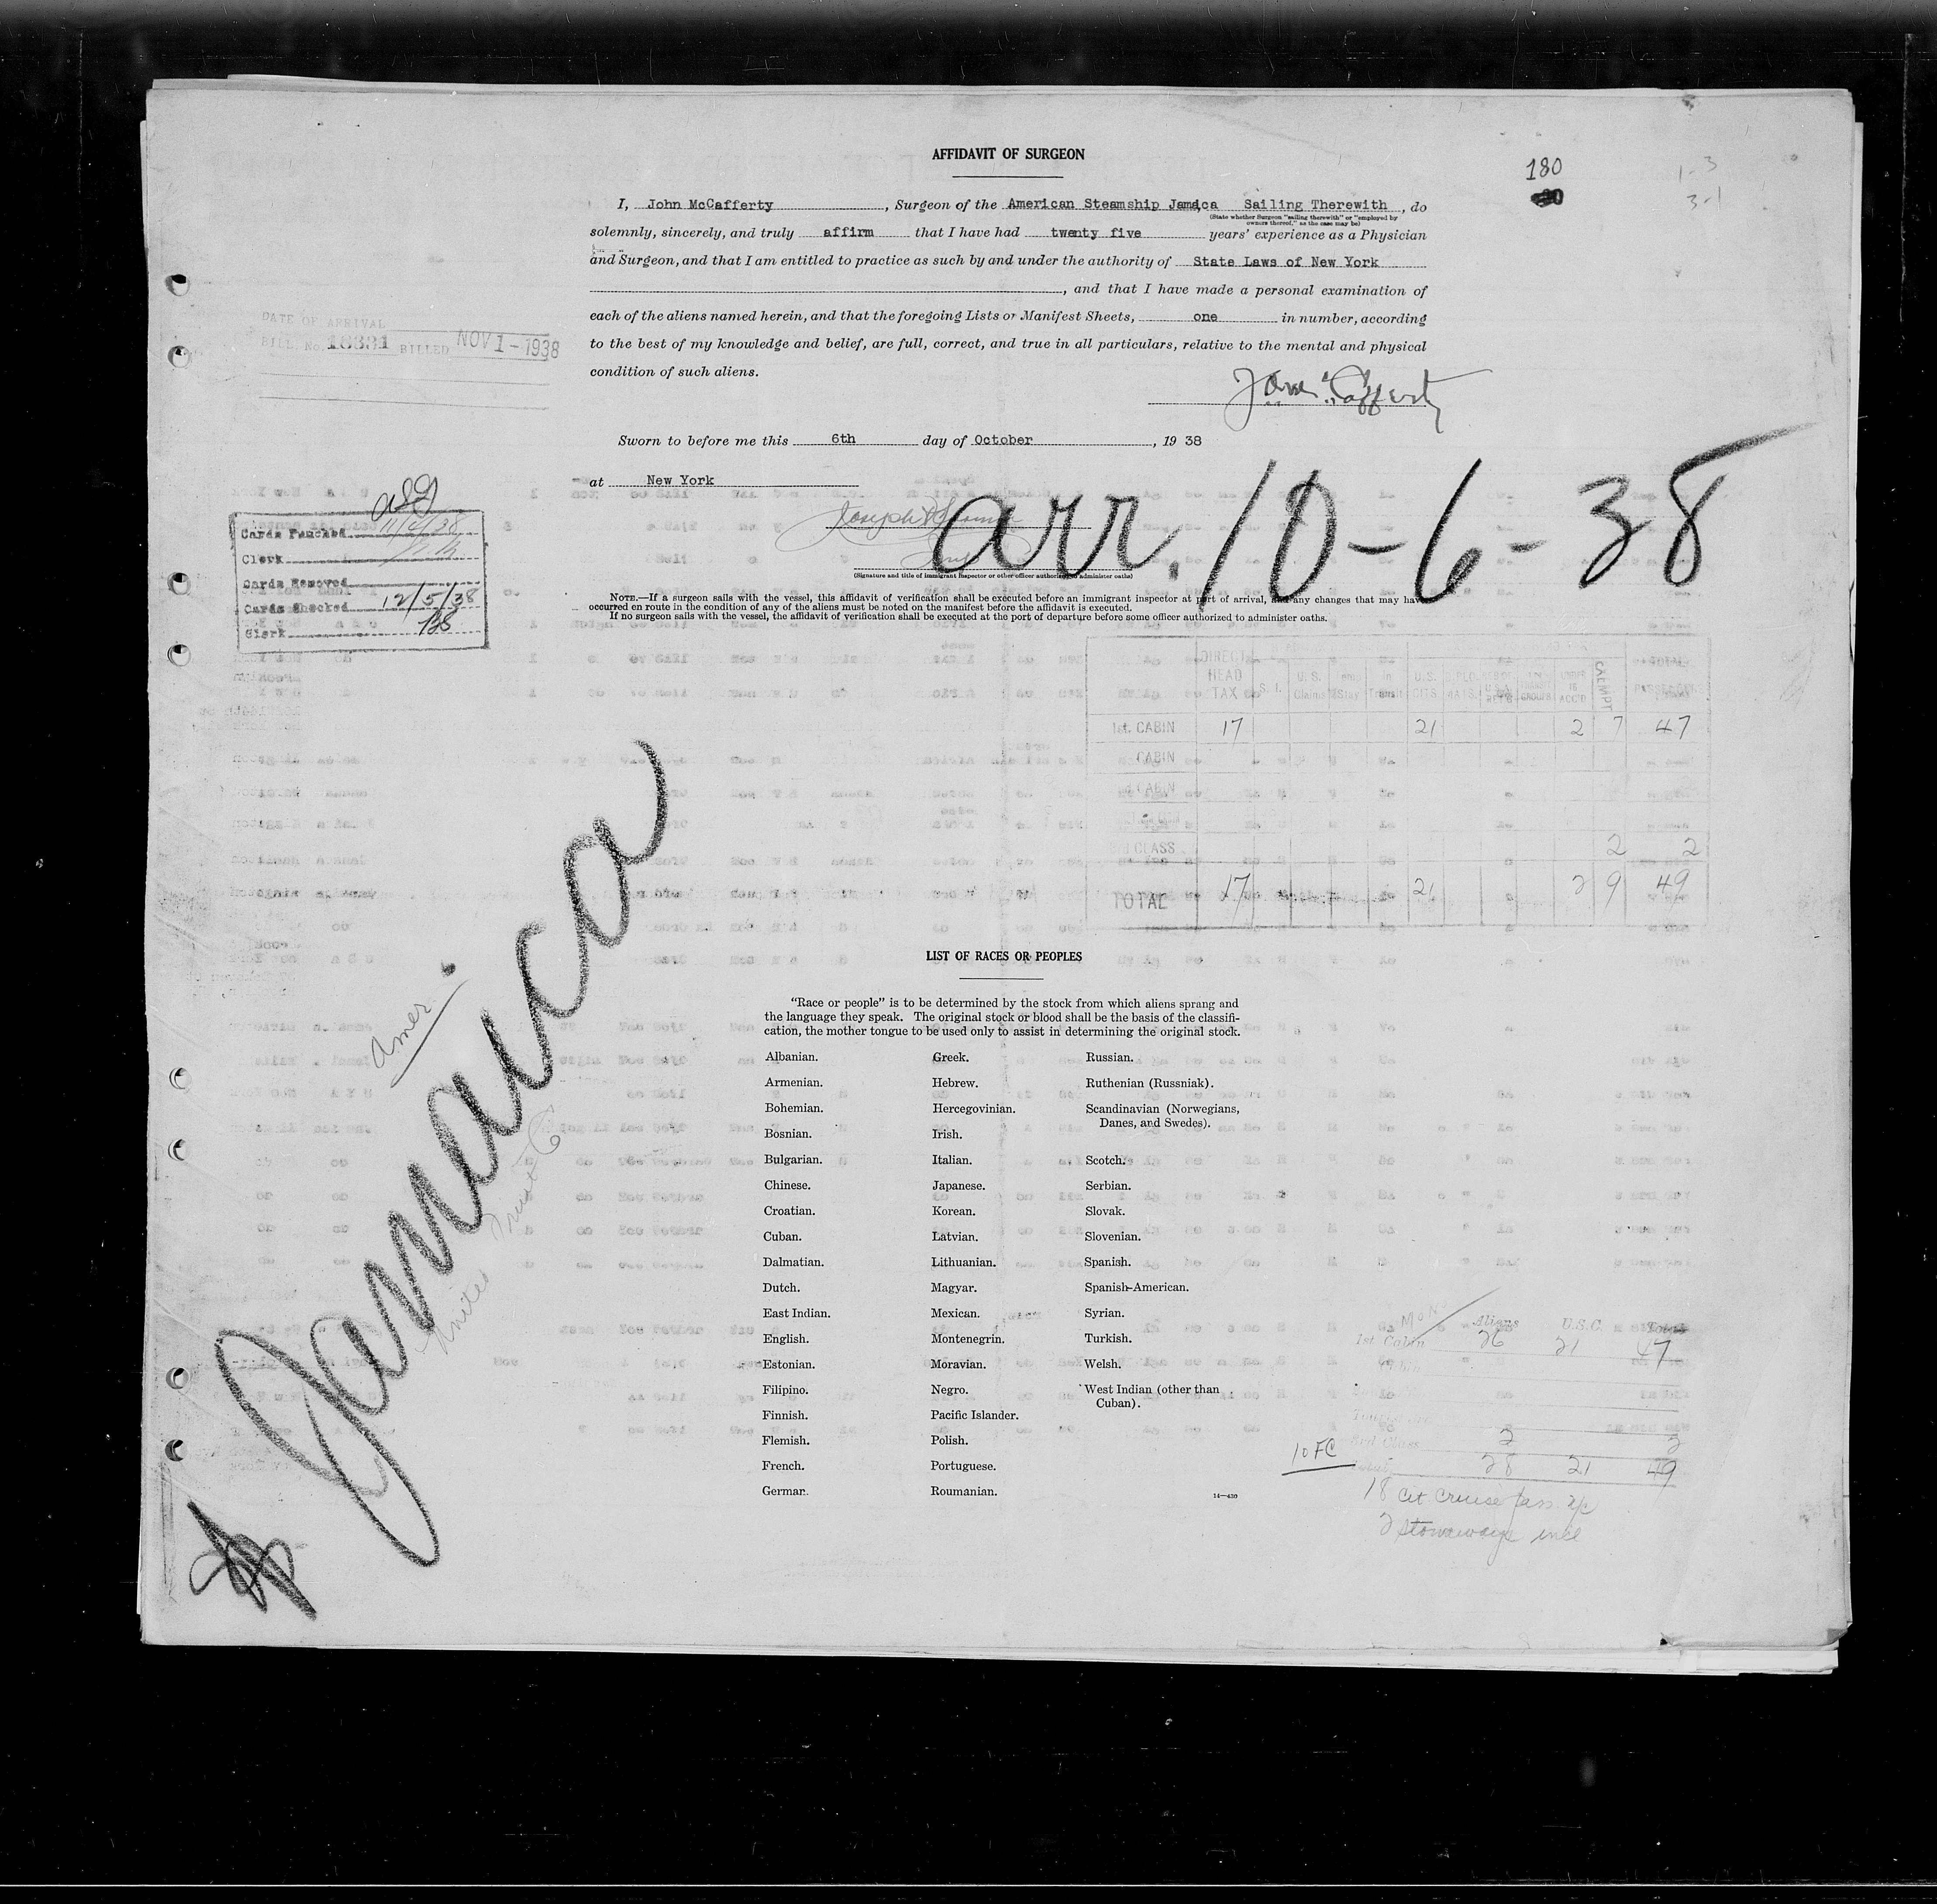 AFFIDAVIT OF SURGEON
180
1-3
3-1
I, John McCafferty, Surgeon of the American Steamship Jamaica Sailing Therewith, do
(State whether Surgeon "sailing therewith" or "employed by
owners thereof," as the case may be)
solemnly, sincerely, and truly affirm that I have had twenty five years' experience as a Physician
and Surgeon, and that I am entitled to practice as such by and under the authority of State Laws of New York
, and that I have made a personal examination of
each of the aliens named herein, and that the foregoing Lists or Manifest Sheets, one in number, according
to the best of my knowledge and belief, are full, correct, and true in all particulars, relative to the mental and physical
condition of such aliens.
DATE OF ARRIVAL
BILL No. 18331 BILLED NOV 1-1938
Sworn to before me this 6th day of October, 1938
at New York
arr. 10-6-38
(Signature and title of immigrant inspector or other officer authorized to administer oaths)
Cards Punched 11/4/38
Clerk
Cards Removed
Cards Checked 12/5/38
Clerk
NOTE.—If a surgeon sails with the vessel, this affidavit of verification shall be executed before an immigrant inspector at port of arrival, and any changes that may have
occurred en route in the condition of any of the aliens must be noted on the manifest before the affidavit is executed.
If no surgeon sails with the vessel, the affidavit of verification shall be executed at the port of departure before some officer authorized to administer oaths.
DIRECT HEAD TAX S. I. U. S. Claims Stay In Transit U.S. CITS. UNDER 16 ACC'D EXEMPT TOTAL
1st. CABIN 17 21 2 7 47
CABIN
CABIN
CLASS 2 2
TOTAL 17 21 2 9 49
Jamaica
Amer.
United Fruit Co
LIST OF RACES OR PEOPLES
"Race or people" is to be determined by the stock from which aliens sprang and
the language they speak. The original stock or blood shall be the basis of the classifi-
cation, the mother tongue to be used only to assist in determining the original stock.
Albanian. Greek. Russian.
Armenian. Hebrew. Ruthenian (Russniak).
Bohemian. Hercegovinian. Scandinavian (Norwegians,
Danes, and Swedes).
Bosnian. Irish.
Bulgarian. Italian. Scotch.
Chinese. Japanese. Serbian.
Croatian. Korean. Slovak.
Cuban. Latvian. Slovenian.
Dalmatian. Lithuanian. Spanish.
Dutch. Magyar. Spanish-American.
East Indian. Mexican. Syrian.
English. Montenegrin. Turkish.
Estonian. Moravian. Welsh.
Filipino. Negro. West Indian (other than
Cuban).
Finnish. Pacific Islander.
Flemish. Polish.
French. Portuguese.
German. Roumanian.
14—420
Aliens U.S.C. Total
1st Cabin 26 21 47
3rd Class 2 2
28 21 49
10 FC
18 cit cruise pass
2 stowaways incl